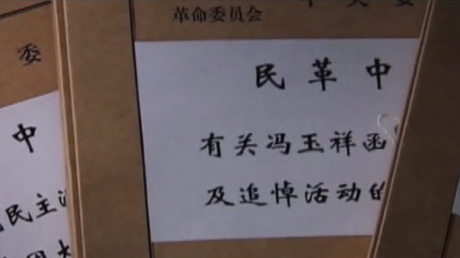 委
中
民主
革命委员会
民革中
有关冯玉祥函
及追悼活动的